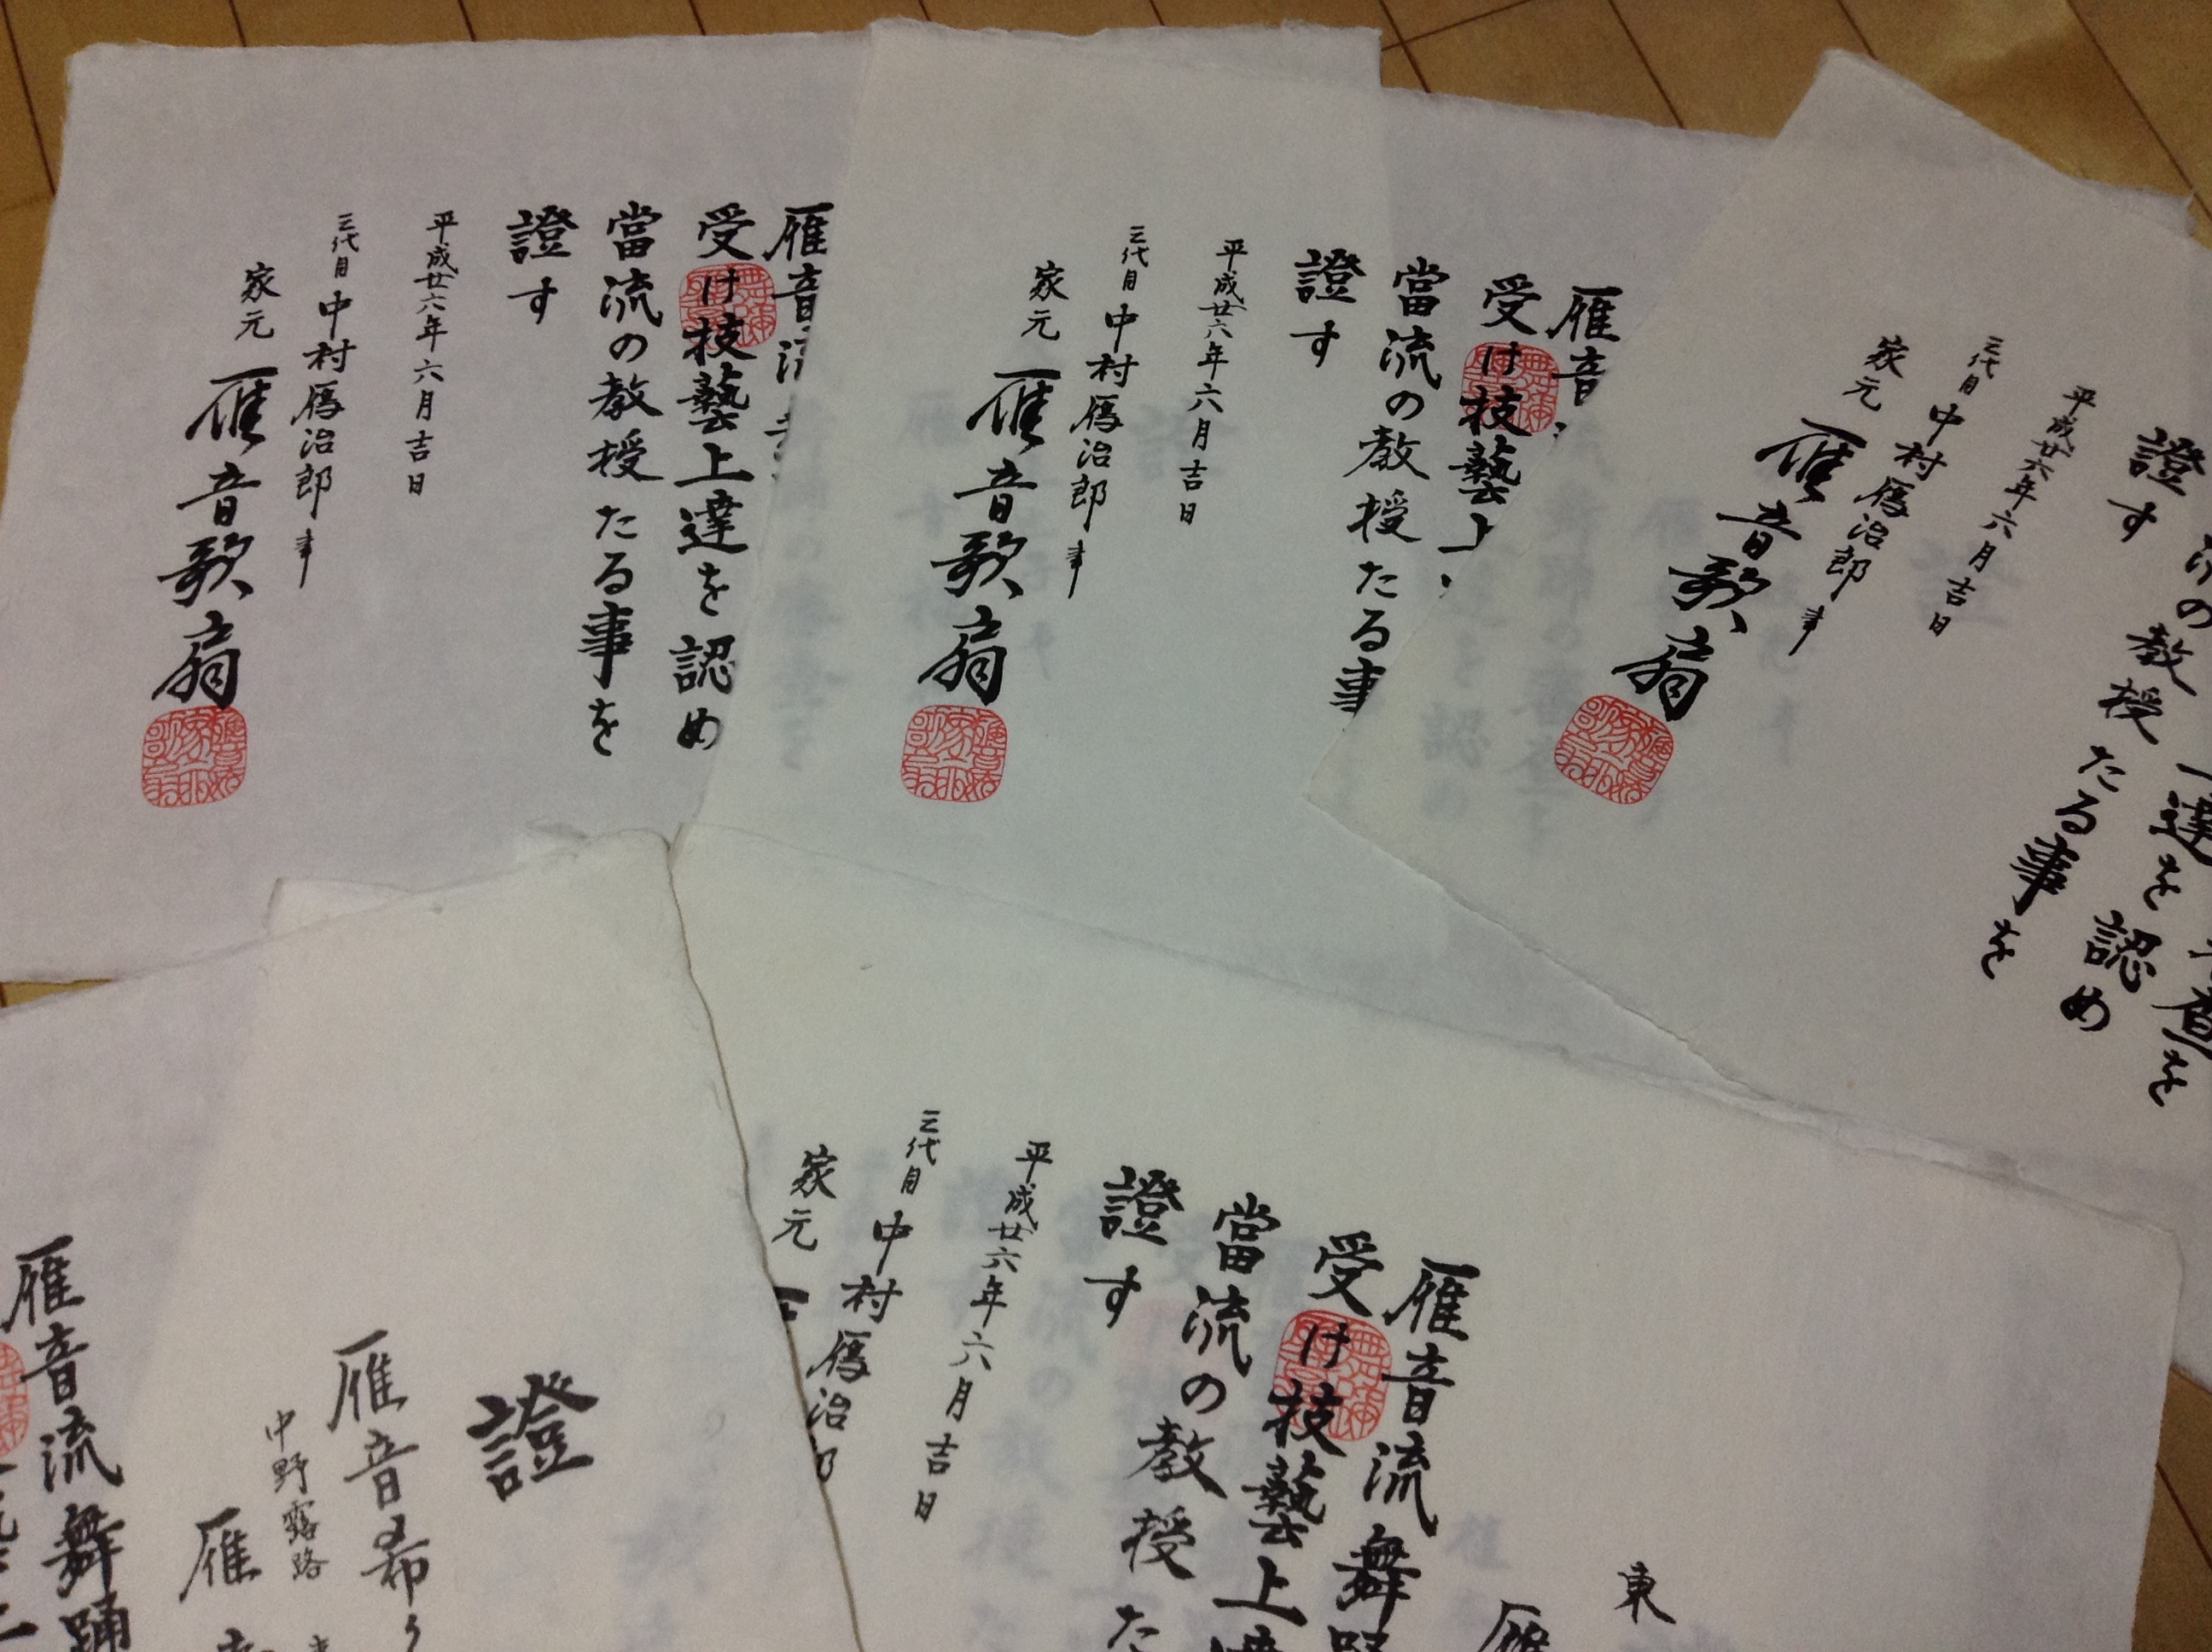 雁音
受け技藝上達を認め
當流の教授たる事を
證す
平成廿六年六月吉日
三代目中村鴈治郎事
家元雁音歌扇
雁音
受け技藝上
當流の教授たる事
證す
平成廿六年六月吉日
三代目中村鴈治郎事
家元雁音歌扇
を
達を認め
の教授たる事を
證す
平成廿六年六月吉日
三代目中村鴈治郎事
家元雁音歌扇
東
雁
雁音流舞踊
受け技藝上達
當流の教授た
證す
平成廿六年六月吉日
三代目中村鴈治
家元
證
雁音希
中野露路
雁
雁音流舞踊